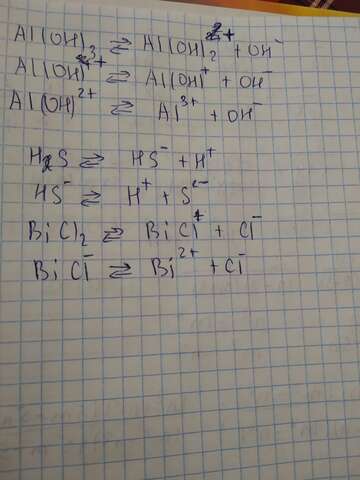 Al(OH)₃ ⇄ Al(OH)₂⁺ + OH⁻
Al(OH)₂⁺ ⇄ Al(OH)⁺ + OH⁻
Al(OH)²⁺ ⇄ Al³⁺ + OH⁻
H₂S ⇄ HS⁻ + H⁺
HS⁻ ⇄ H⁺ + S²⁻
BiCl₂ ⇄ BiCl⁺ + Cl⁻
BiCl⁻ ⇄ Bi²⁺ + Cl⁻